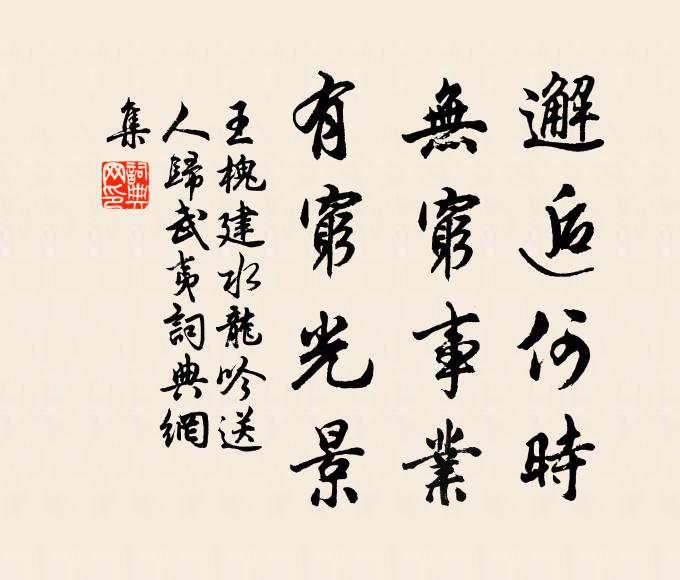 邂逅何時
無窮事業
有窮光景
王槐建水龍吟送
人歸武夷詞典網
集
詞典
网印